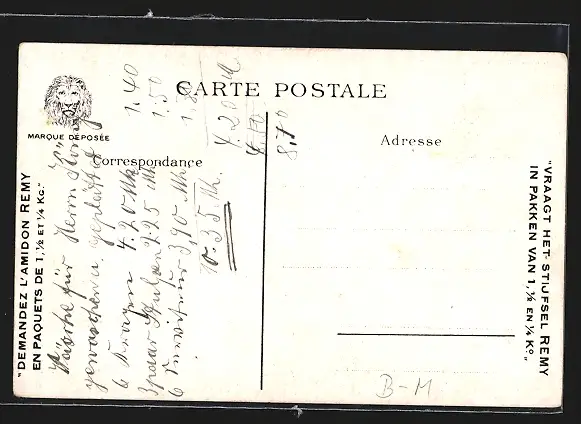 CARTE POSTALE
MARQUE DÉPOSÉE
Correspondance
Adresse
"DEMANDEZ L'AMIDON REMY
EN PAQUETS DE 1, ½ ET ¼ KG."
"VRAAGT HET STIJFSEL REMY
IN PAKKEN VAN 1, ½ EN ¼ Ko."
Wäsche für Herrn
gewaschen u. geplättet
6 Kragen 4.20 Mk 1.40
3 paar 2.25 Mk 1.50
6 3,90 Mk
10.35 Mk. 4.20 M
8,10
B-M